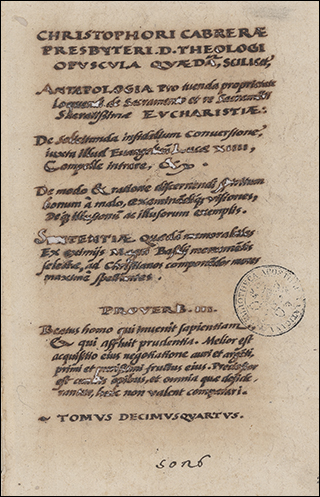 CHRISTOPHORI CABRERÆ
PRESBYTERI. D. THEOLOGI
OPUSCULA QUÆDA, SCILICET,
ANTAPOLOGIA Pro tuenda proprietate
loquendi de Sacramento et re Sacramenti
EUCHARISTIÆ:
De sollicitanda infidelium Conversione,
iuxta illud Evangelij Lucæ XIIII,
Compelle intrare, &c.
De modo & ratione discernendi spiritum
bonum à malo, examinandiq; visiones,
illusorum exemplis.
SENTENTIÆ Quædam memorabiles
Ex eximijs Magni Basilij
selectæ, ad Christianos componendos mores
maxime spectantes.
PROVERB. III.
Beatus homo qui invenit sapientiam
& qui affluit prudentia. Melior est
acquisitio eius negotiatione auri et argenti,
primi et purissimi fructus eius. Preciosior
est cunctis opibus, et omnia quæ deside-
rantur, huic non valent comparari.
TOMUS DECIMUSQUARTUS.
BIBLIOTHECA APOSTOLICA VATICANA
5026